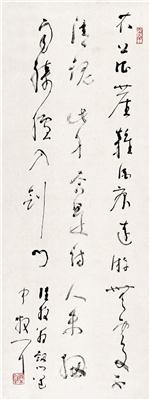 衣上征塵雜酒痕遠游無處不
消魂此身合是詩人未細
雨騎驢入劍門
陸放翁劍門道
中 散耳